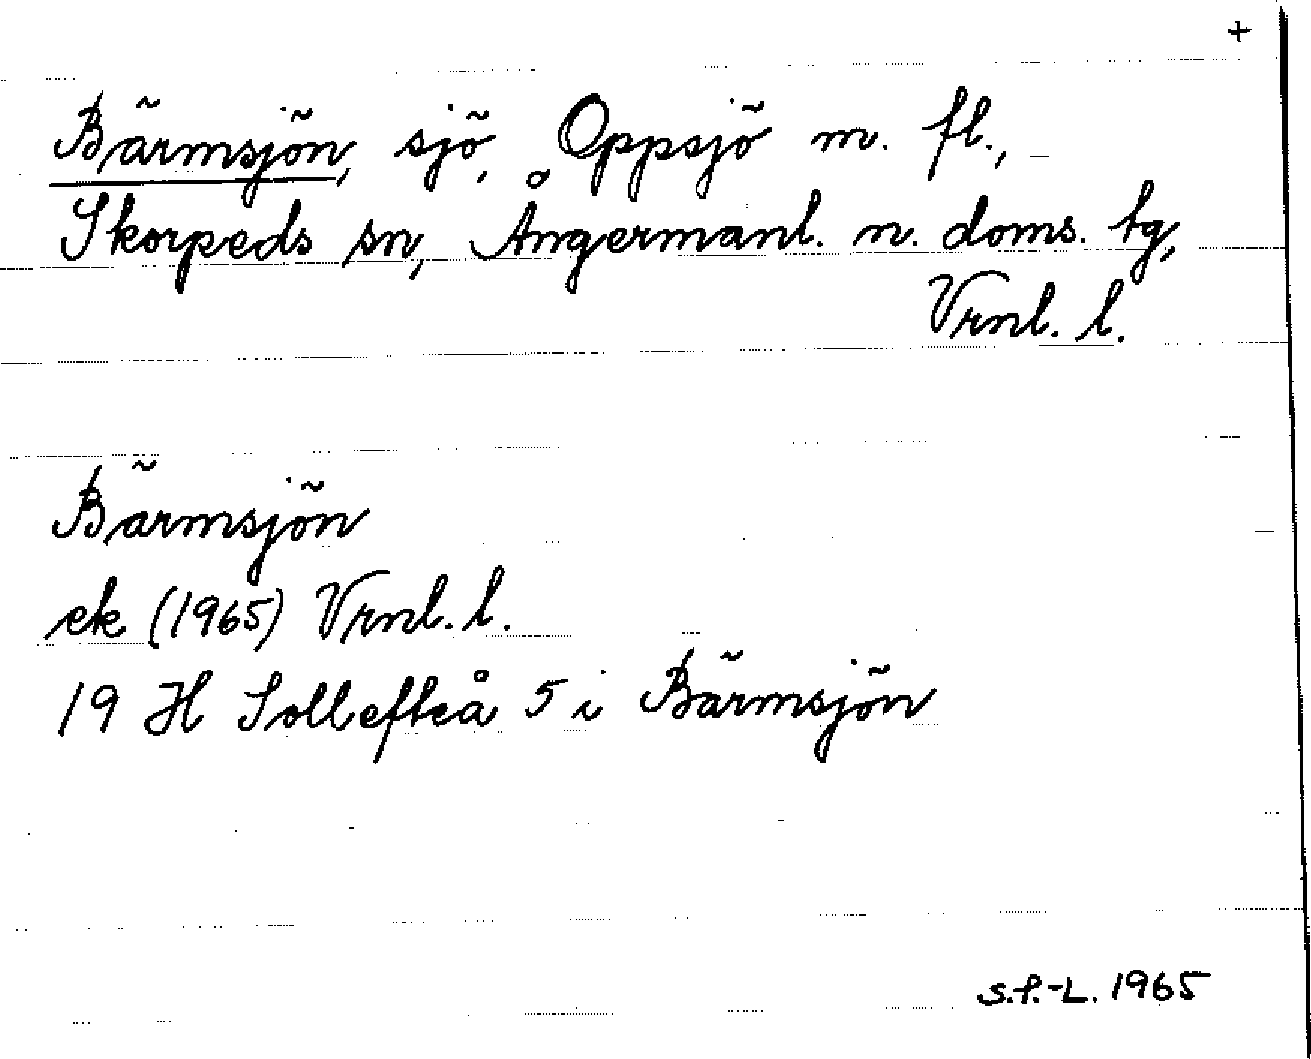 +
Bärmsjön, sjö, Oppsjö m. fl.,
Skorpeds sn, Ångermanl. n. doms. tg,
Vrnl. l.
Bärmsjön
ek (1965) Vrnl. l.
19 H Sollefteå 5 i Bärmsjön
S.P.-L. 1965